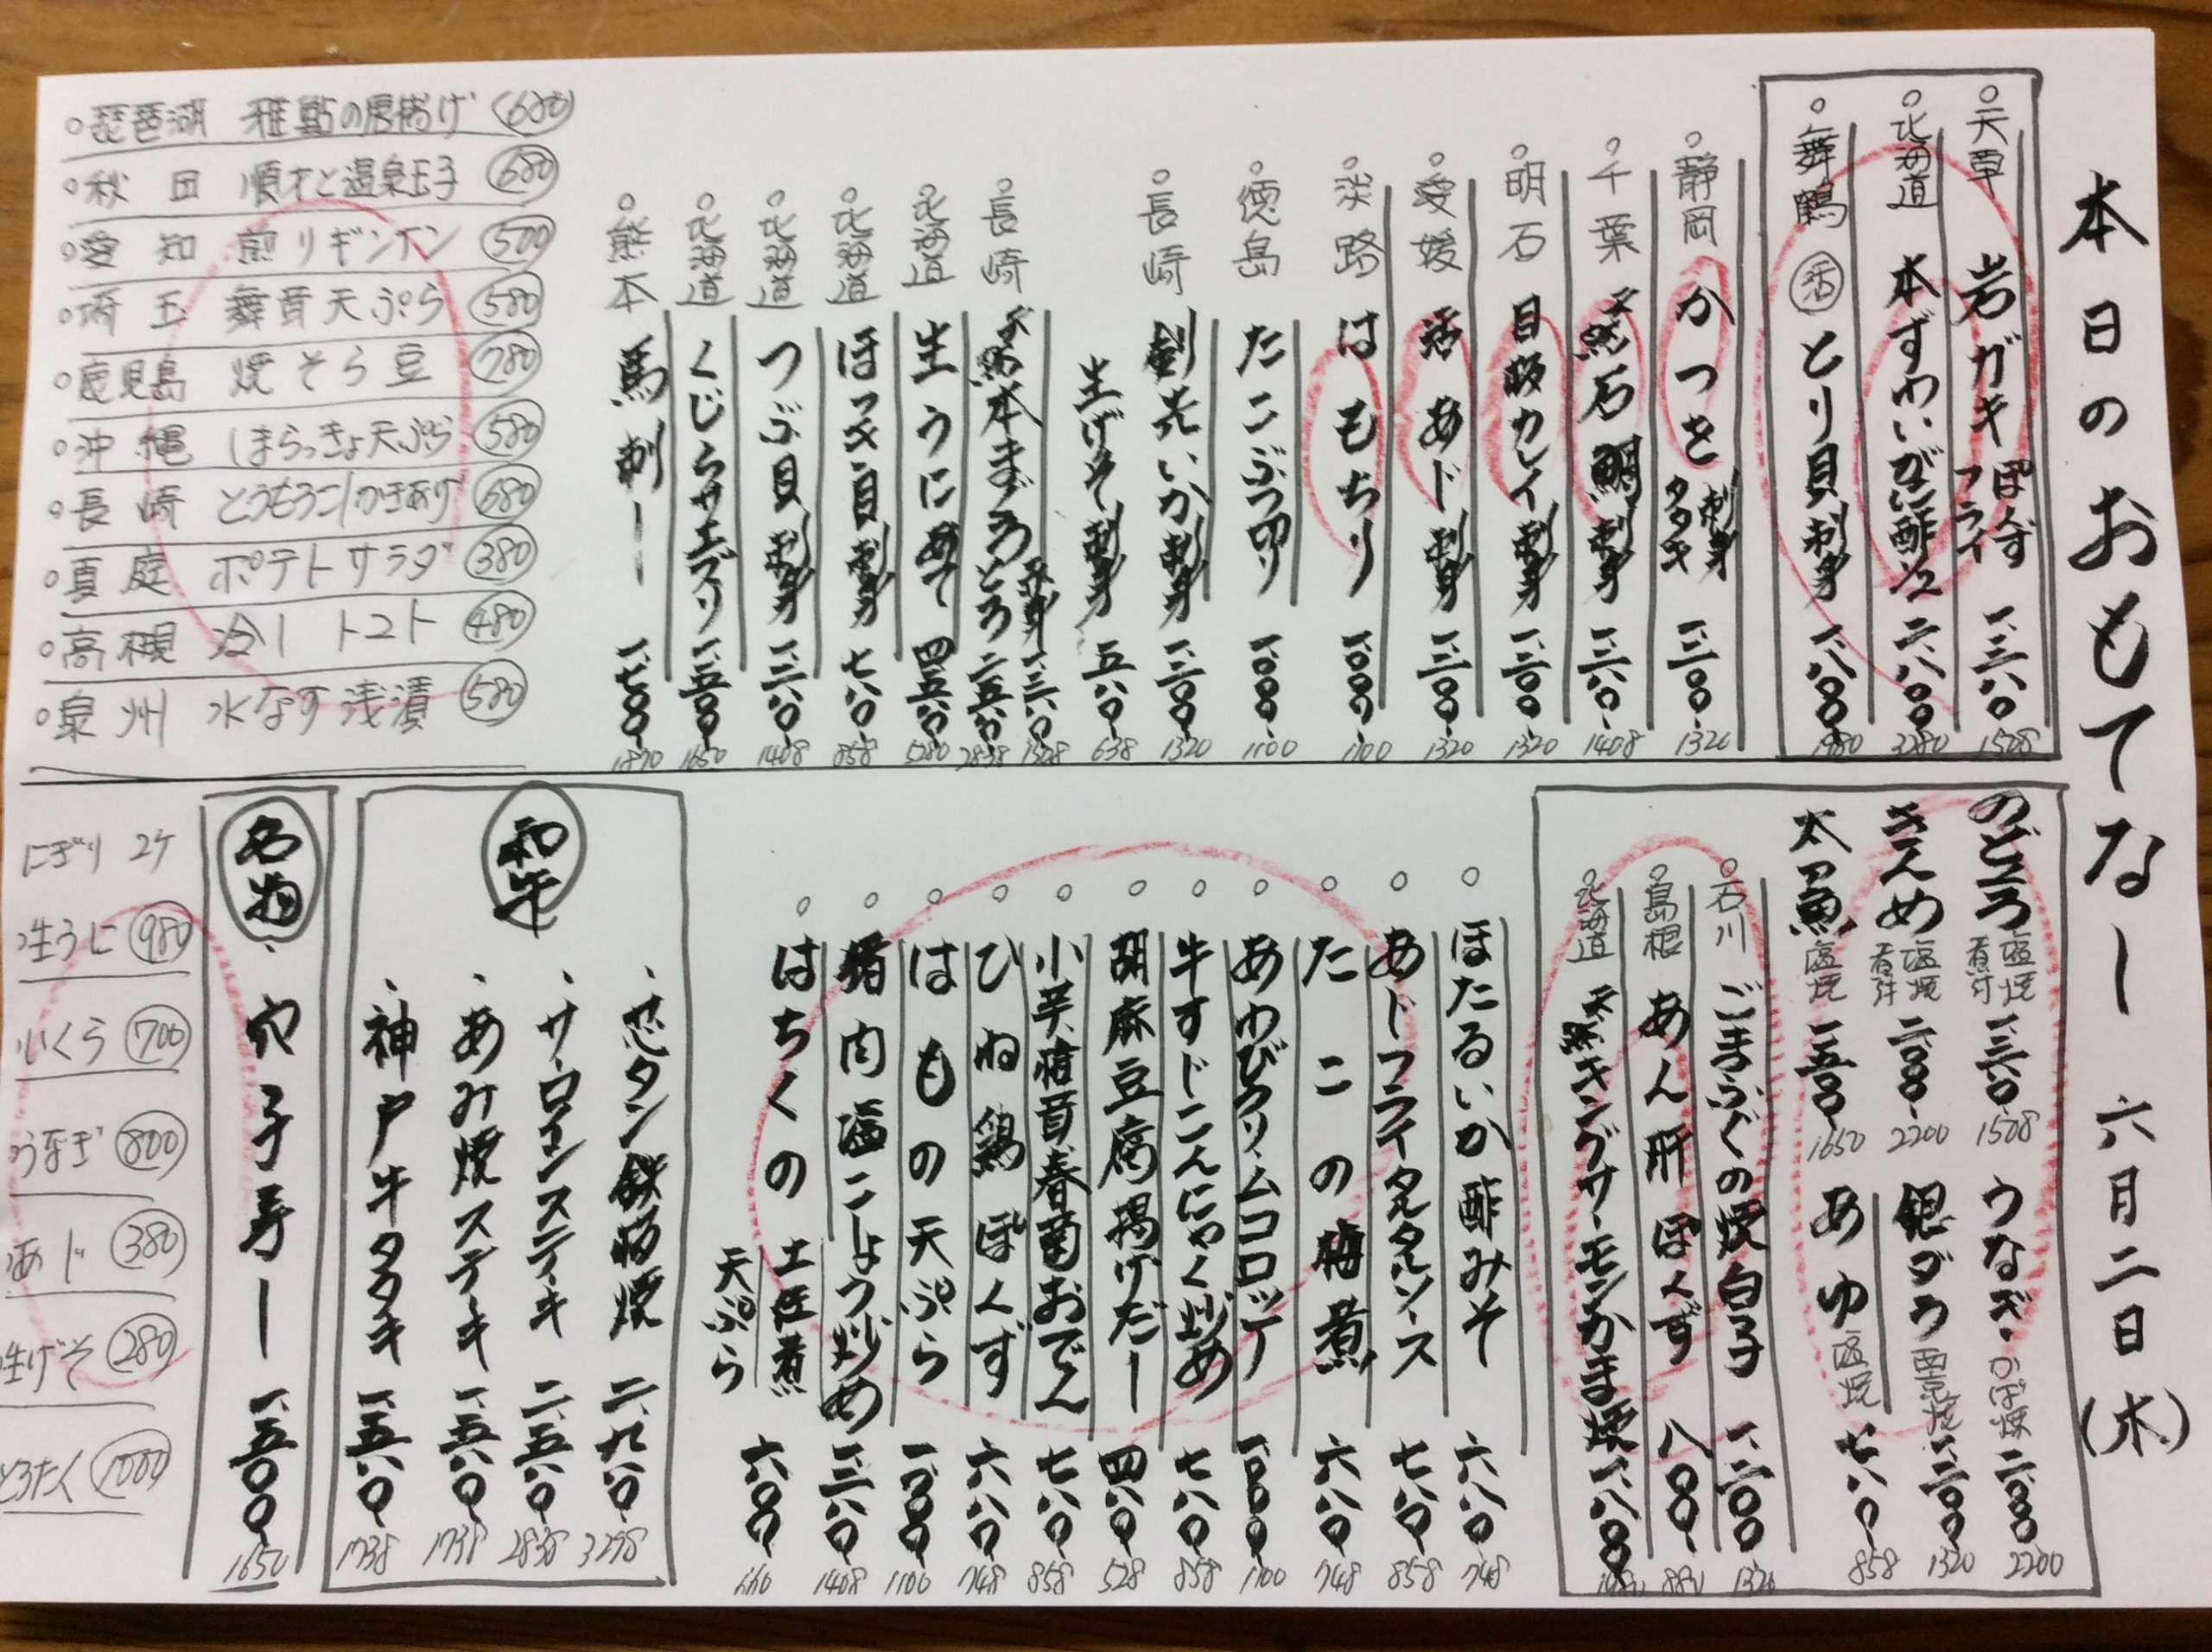 本日のおもてなし 六月二日(木)
天草 岩ガキ ぽんず フライ 一、三八〇 1508
北海道 本ずわいがに酢 1/2 二、八〇〇 3080
舞鶴 活 とり貝刺身 一、八〇〇 1980
静岡 かつを 刺身 タタキ 一、二〇〇 1320
千葉 天然石鯛刺身 一、二八〇 1408
明石 目板カレイ刺身 一、二〇〇 1320
愛媛 活あじ刺身 一、二〇〇 1320
淡路 はもちり 一、〇〇〇 1100
徳島 たこぶつ切り 一、〇〇〇 1100
長崎 剣先いか刺身 一、二〇〇 1320
生げそ刺身 五八〇 638
長崎 天然本まぐろ 赤身 一、三八〇 1508
とろ 二、五八〇 2838
北海道 生うにあて 四、八〇〇 5280
北海道 ほっき貝刺身 七八〇 858
北海道 つぶ貝刺身 一、二八〇 1408
北海道 くじらサエズリ 一、五〇〇 1650
熊本 馬刺し 一、七〇〇 1870
琵琶湖 稚鮎の唐揚げ 680
秋田 順才と温泉玉子 680
愛知 煎りギンナン 500
埼玉 舞茸天ぷら 580
鹿児島 焼そら豆 780
沖縄 しまらっきょ天ぷら 580
長崎 とうもろこしかきあげ 680
真庭 ポテトサラダ 380
高槻 冷しトマト 480
泉州 水なす浅漬 580
のどぐろ 塩焼 煮付 一、三八〇 1508
きんめ 塩焼 煮付 二、〇〇〇 2200
太刀魚 塩焼 一、五〇〇 1650
うなぎ かば焼 二、〇〇〇 2200
銀ダラ 西京焼 一、二〇〇 1320
あゆ 塩焼 七八〇 858
石川 ごまふぐの焼白子 一、二〇〇 1320
島根 あん肝ぽんず 八〇〇 880
北海道 天然キングサーモンかま焼 一、八〇〇
ほたるいか酢みそ 六八〇 748
あじフライタルタルソース 七八〇 858
たこの梅煮 六八〇 748
あわびクリームコロッケ 一、〇〇〇 1100
牛すじこんにゃく炒め 七八〇 858
胡麻豆腐揚げだし 四八〇 528
小芋、椎茸、春菊おでん 七八〇 858
ひね鶏ぽんず 六八〇 748
はもの天ぷら 一、〇〇〇 1100
猪肉塩こしょう炒め 一、二八〇 1408
はちくの 土佐煮 天ぷら 六〇〇 660
和牛
芯タン鉄板焼 二、九八〇 3278
サーロインステーキ 二、五八〇 2838
あみ焼ステーキ 一、五八〇 1738
神戸牛タタキ 一、五八〇 1738
名物
穴子寿し 一、五〇〇 1650
にぎり 2ケ
生うに 980
いくら 700
うなぎ 800
あじ 380
生げそ 280
とろたく 1000